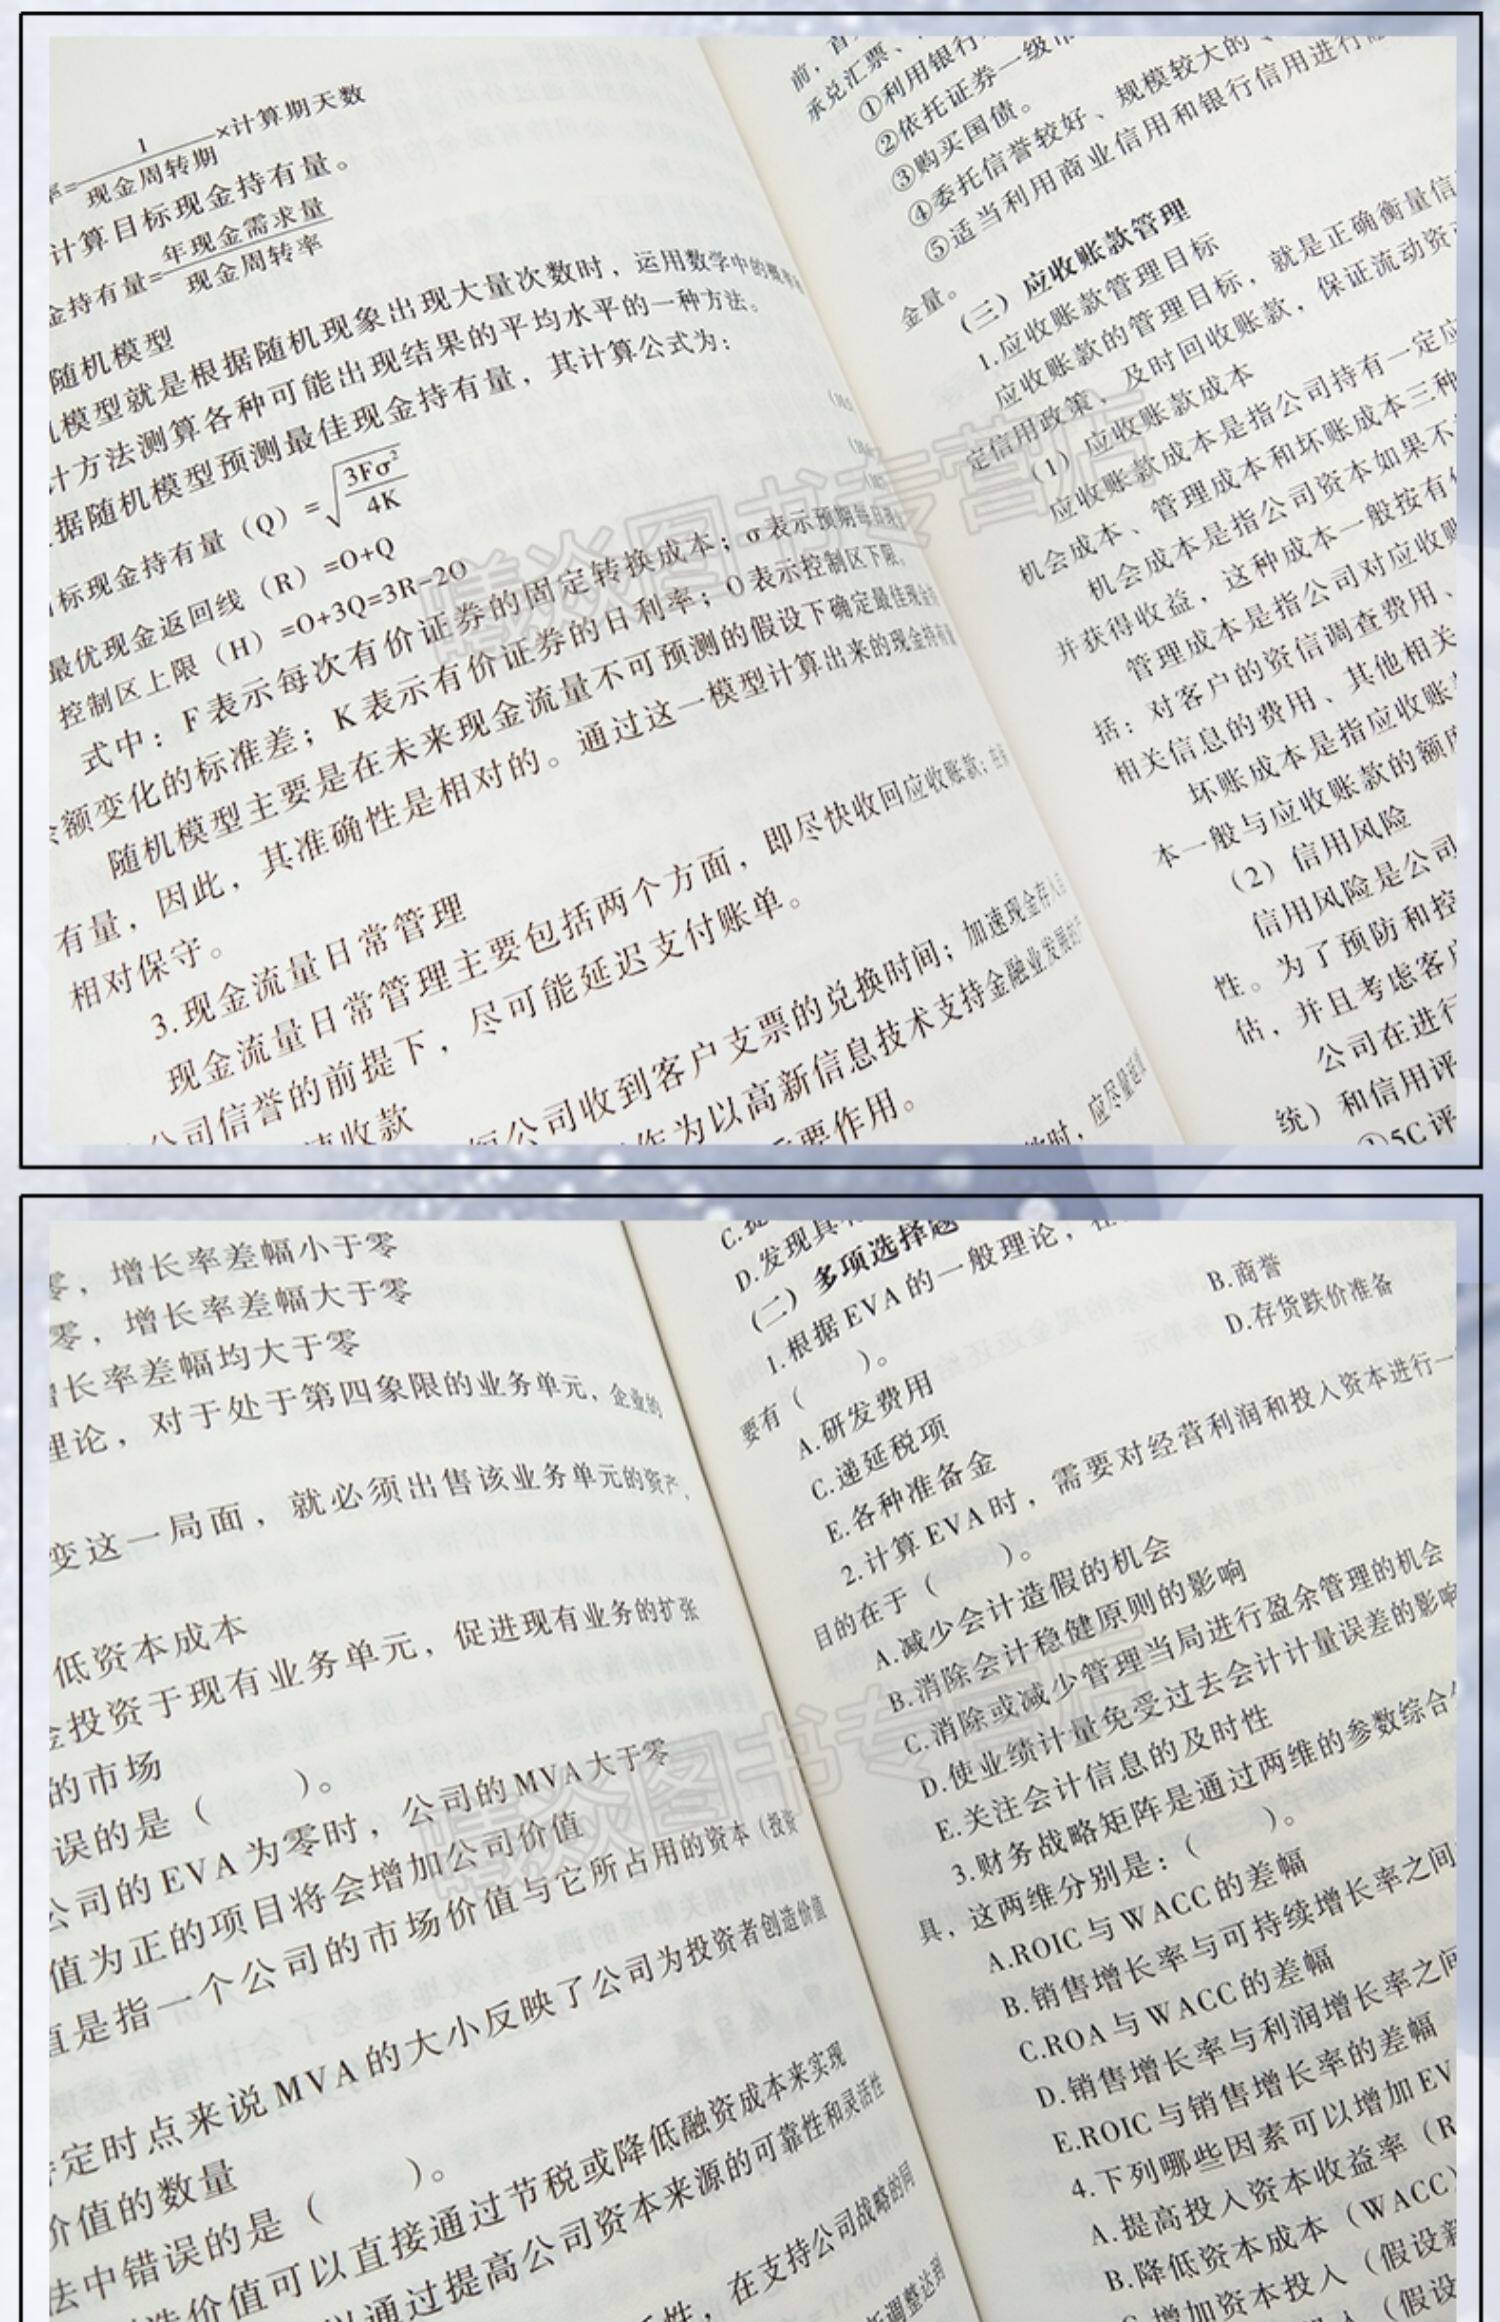 1
×计算期天数
率=
现金周转期
计算目标现金持有量。
年现金需求量
金持有量=
现金周转率
随机模型
模型就是根据随机现象出现大量次数时，运用数学中的概率
计方法测算各种可能出现结果的平均水平的一种方法。
据随机模型预测最佳现金持有量，其计算公式为：
标现金持有量（Q）=√3Fσ²/4K
最优现金返回线（R）=O+Q
控制区上限（H）=O+3Q=3R-2O
式中：F表示每次有价证券的固定转换成本；σ表示预期每日现金
余额变化的标准差；K表示有价证券的日利率；O表示控制区下限。
随机模型主要是在未来现金流量不可预测的假设下确定最佳现金持
有量，因此，其准确性是相对的。通过这一模型计算出来的现金持有量
相对保守。
3.现金流量日常管理
现金流量日常管理主要包括两个方面，即尽快收回应收账款；在
公司信誉的前提下，尽可能延迟支付账单。
速收款
公司收到客户支票的兑换时间；加速现金存入
作为以高新信息技术支持金融业发展的
重要作用。
时，应尽量
承兑汇票、
①利用银行
②依托证券一级市
③购买国债。
④委托信誉较好、规模较大的
⑤适当利用商业信用和银行信用进行
金量。
（三）应收账款管理
1.应收账款管理目标
应收账款的管理目标，就是正确衡量信
定信用政策、及时回收账款，保证流动资
（1）应收账款成本
应收账款成本是指公司持有一定应
机会成本、管理成本和坏账成本三种
机会成本是指公司资本如果不
并获得收益，这种成本一般按有
管理成本是指公司对应收账
括：对客户的资信调查费用、
相关信息的费用、其他相关
坏账成本是指应收账
本一般与应收账款的额度
（2）信用风险
信用风险是公司
性。为了预防和控
估，并且考虑客户
公司在进行
统）和信用评
①5C评
曦焱图书专营店
零，增长率差幅小于零
零，增长率差幅大于零
增长率差幅均大于零
理论，对于处于第四象限的业务单元，企业的
变这一局面，就必须出售该业务单元的资产，
低资本成本
金投资于现有业务单元，促进现有业务的扩张
的市场
误的是（ ）。
公司的EVA为零时，公司的MVA大于零
值为正的项目将会增加公司价值
值是指一个公司的市场价值与它所占用的资本（投资
定时点来说MVA的大小反映了公司为投资者创造价值
价值的数量
法中错误的是（ ）。
造价值可以直接通过节税或降低融资成本来实现
以通过提高公司资本来源的可靠性和灵活性
性，在支持公司战略的同
调整达到
D.发现具有
（二）多项选择题
1.根据EVA的一般理论，在
要有（ ）。
A.研发费用
B.商誉
C.递延税项
D.存货跌价准备
E.各种准备金
2.计算EVA时，需要对经营利润和投入资本进行一
目的在于（ ）。
A.减少会计造假的机会
B.消除会计稳健原则的影响
C.消除或减少管理当局进行盈余管理的机会
D.使业绩计量免受过去会计计量误差的影响
E.关注会计信息的及时性
3.财务战略矩阵是通过两维的参数综合
具，这两维分别是：（ ）。
A.ROIC与WACC的差幅
B.销售增长率与可持续增长率之间
C.ROA与WACC的差幅
D.销售增长率与利润增长率之间
E.ROIC与销售增长率的差幅
4.下列哪些因素可以增加EV
A.提高投入资本收益率（R
B.降低资本成本（WACC）
增加资本投入（假设新
（假设
曦焱图书专营店